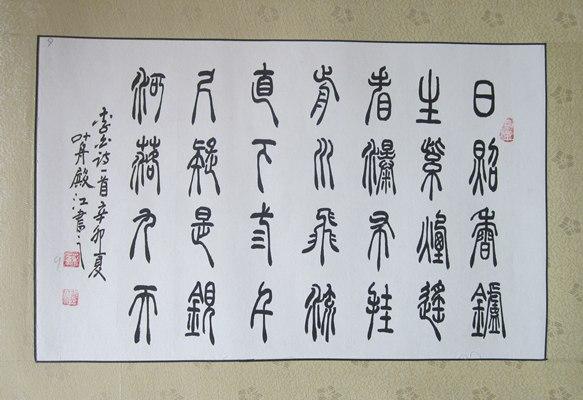 日照香鑪
生紫煙遙
看瀑布挂
前川飛流
直下弎千
尺疑是銀
河落九天
李白诗一首辛卯夏
殿江書之